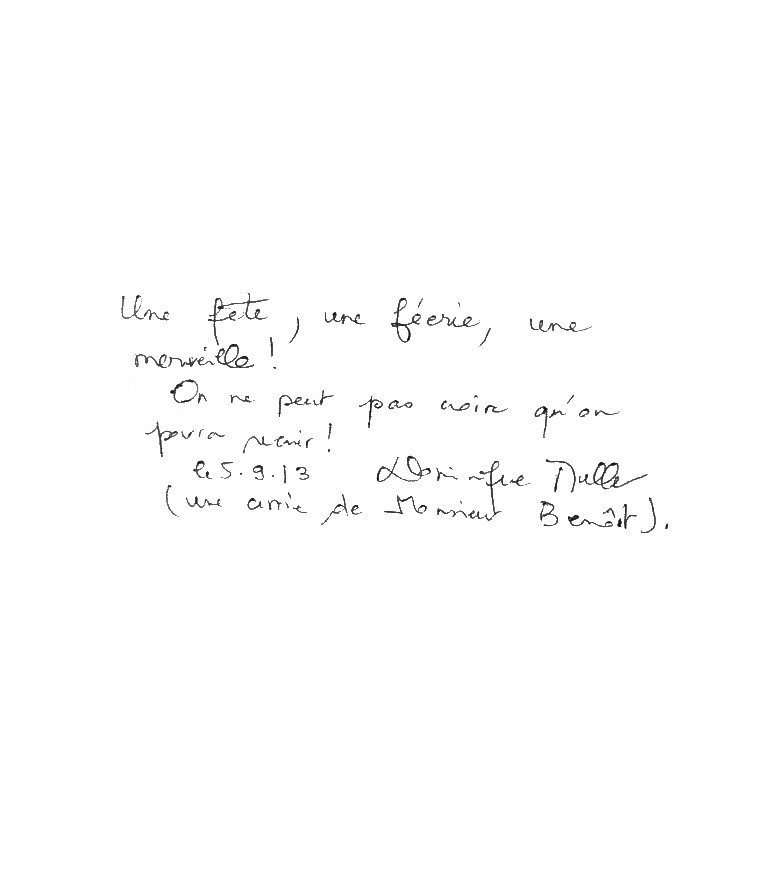 Une fête, une féerie, une
merveille !
On ne peut pas croire qu'on
pourra revenir !
le 5.9.13 Dominique
(une amie de Monsieur Benoît).